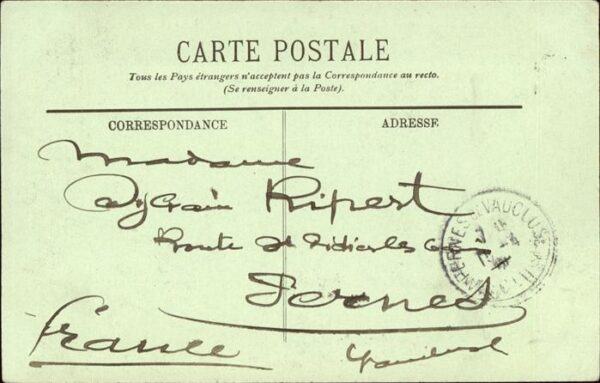 CARTE POSTALE
Tous les Pays étrangers n'acceptent pas la Correspondance au recto.
(Se renseigner à la Poste).
CORRESPONDANCE
ADRESSE
Madame
Sylvain Ripert
Route St Didier les
Pernes
France
Vaucluse